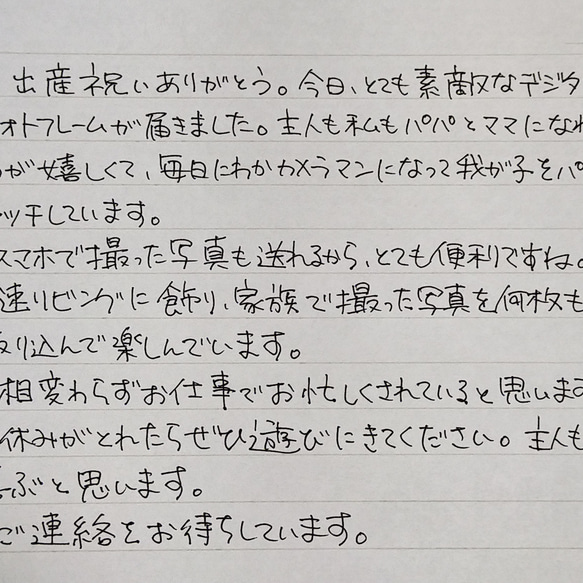 出産祝いありがとう。今日、とても素敵なデジタ
ォトフレームが届きました。主人も私もパパとママになれ
が嬉しくて、毎日にわかカメラマンになって我が子をパ
ャッチしています。
スマホで撮った写真も送れるから、とても便利ですね。
速リビングに飾り、家族で撮った写真を何枚も
取り込んで楽しんでいます。
相変わらずお仕事でお忙しくされていると思います
休みがとれたらぜひ遊びにきてください。主人も
ぶと思います。
ご連絡をお待ちしています。